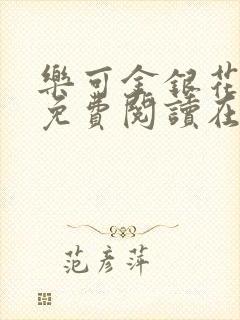 樂可金銀花
免費閱讀在
范彥萍